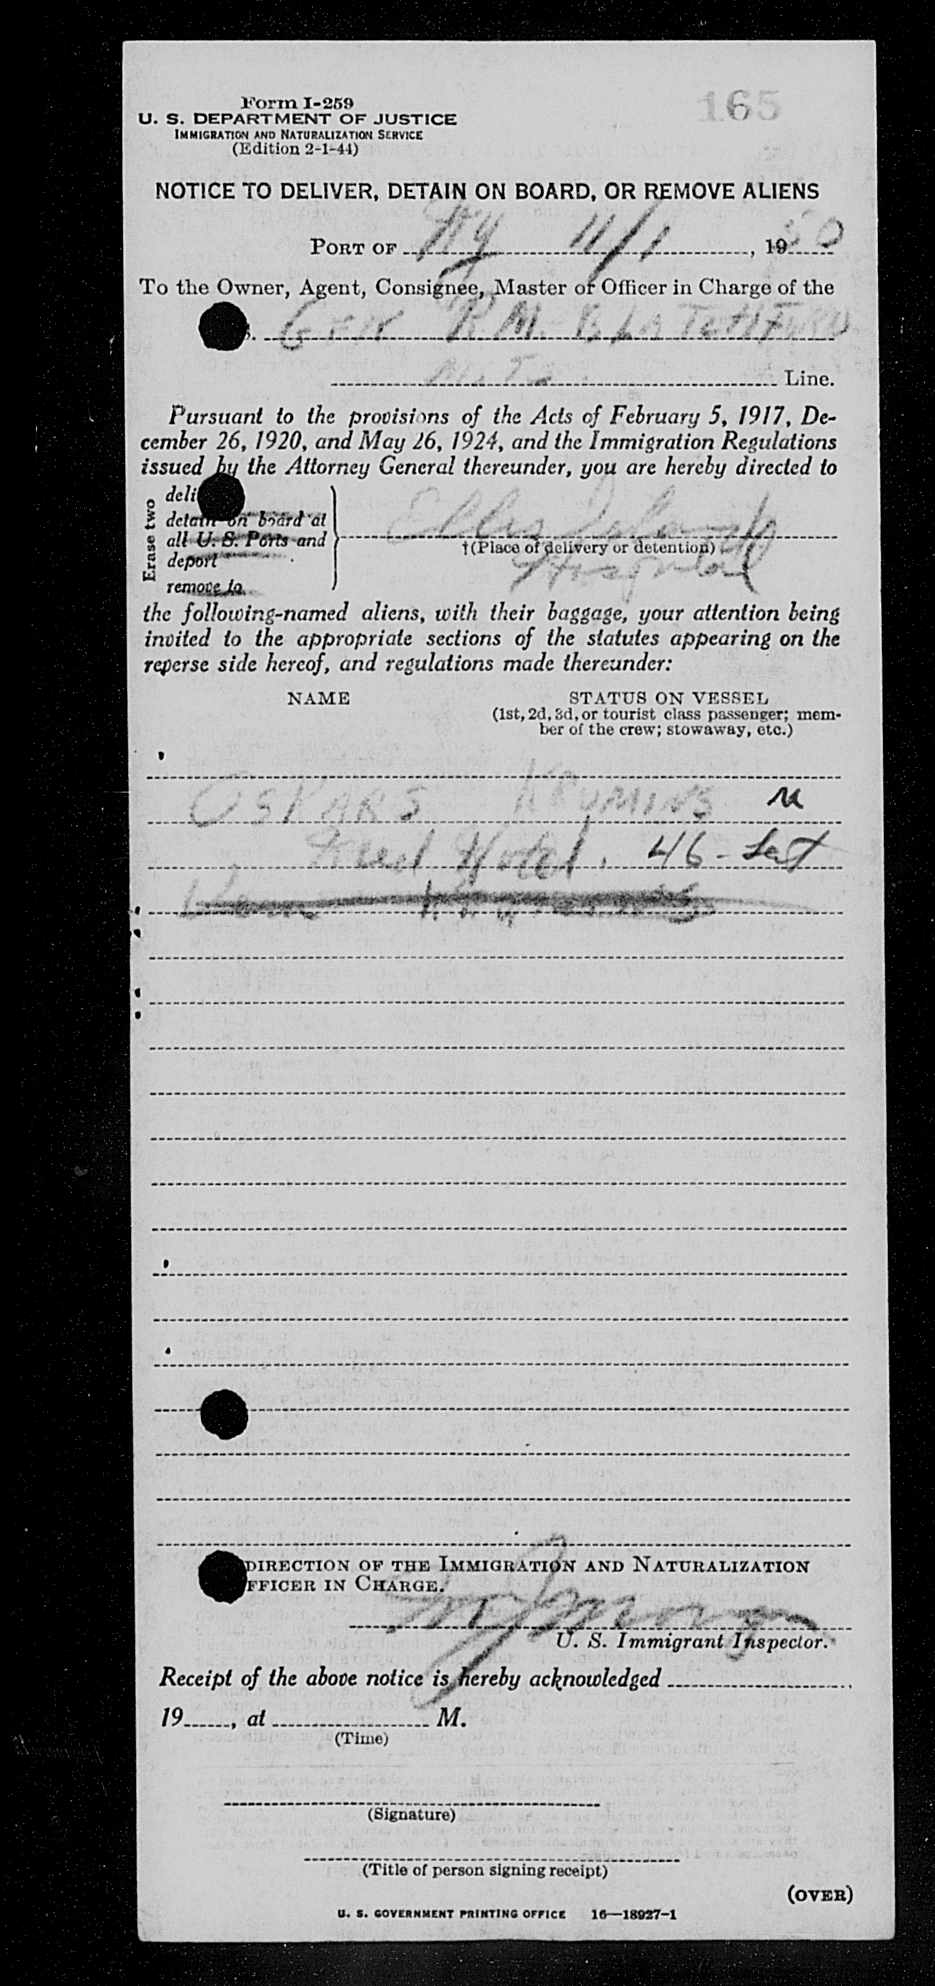 165
Form I-259
U. S. DEPARTMENT OF JUSTICE
IMMIGRATION AND NATURALIZATION SERVICE
(Edition 2-1-44)
NOTICE TO DELIVER, DETAIN ON BOARD, OR REMOVE ALIENS
PORT OF NY 11/1, 1950
To the Owner, Agent, Consignee, Master or Officer in Charge of the
S. GEN R.M. BLATCHFORD
Line.
Pursuant to the provisions of the Acts of February 5, 1917, De-
cember 26, 1920, and May 26, 1924, and the Immigration Regulations
issued by the Attorney General thereunder, you are hereby directed to
Erase two
deli
detain on board at
all U. S. Ports and
deport
remove to
Ellis Island
†(Place of delivery or detention)
Hospital
the following-named aliens, with their baggage, your attention being
invited to the appropriate sections of the statutes appearing on the
reverse side hereof, and regulations made thereunder:
NAME
STATUS ON VESSEL
(1st, 2d, 3d, or tourist class passenger; mem-
ber of the crew; stowaway, etc.)
OSKARS KRUMINS M
Hotel. 46 - Lat
DIRECTION OF THE IMMIGRATION AND NATURALIZATION
FFICER IN CHARGE.
U. S. Immigrant Inspector.
Receipt of the above notice is hereby acknowledged
19 , at M.
(Time)
(Signature)
(Title of person signing receipt)
(OVER)
U. S. GOVERNMENT PRINTING OFFICE 16—18927-1